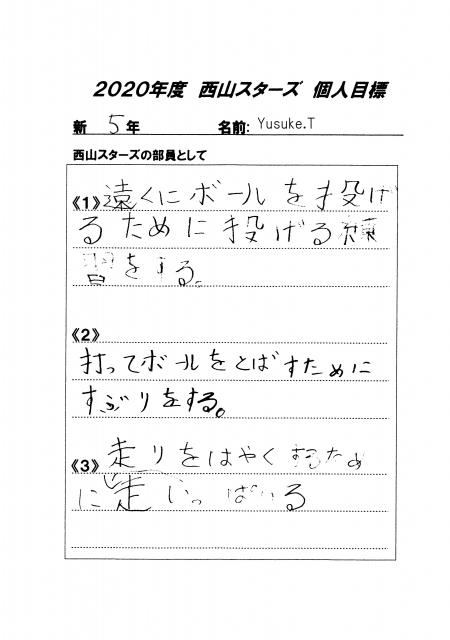 2020年度 西山スターズ 個人目標
新 5年 名前: Yusuke.T
西山スターズの部員として
《1》遠くにボールを投げ
るために投げる練
習をする。
《2》
打ってボールをとばすために
すぶりをする。
《3》走りをはやくするため
に走 いっぱい る